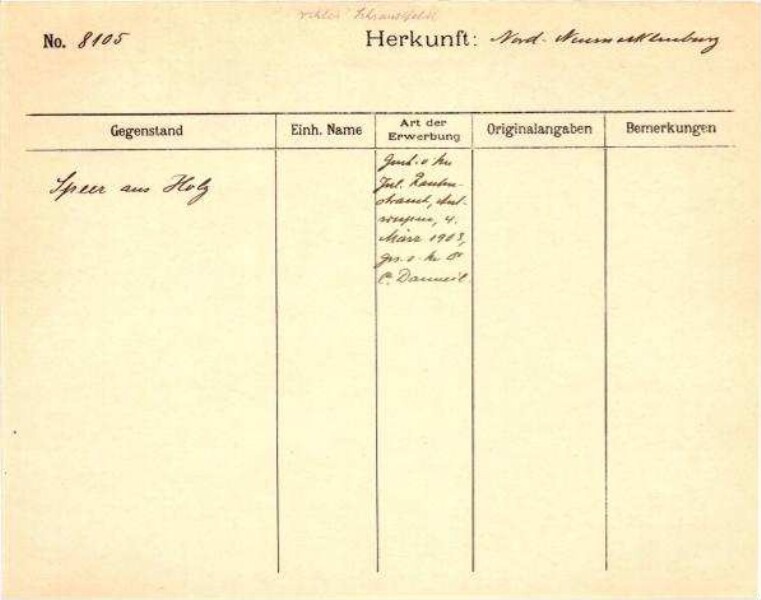 No. 8105
Herkunft: Nord-Neumecklenburg
Gegenstand
Einh. Name
Art der Erwerbung
Originalangaben
Bemerkungen
Speer aus Holz
Jul. Rauten-
strauch, Ant-
werpen, 4.
März 1903,
C. Danneil